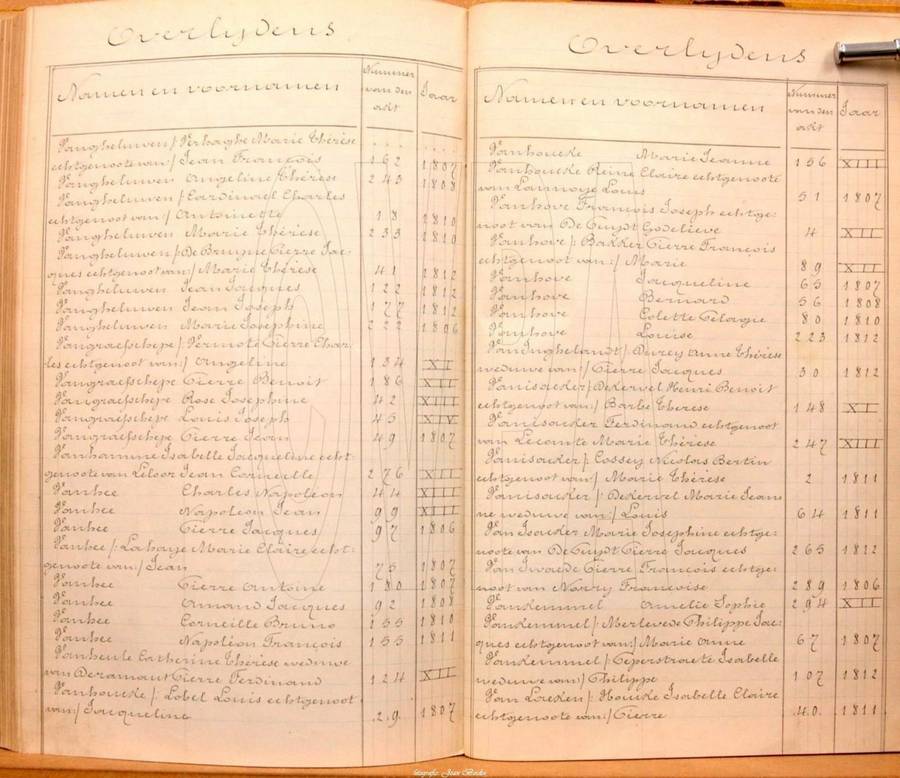 Overlijdens
Namen en voornamen Nummer van den akt Jaar
Vangheluwen /: Verhaeghe Marie Thérèse
echtgenoote van :/ Jean François 162 1807
Vangheluwen Angeline Thérèse 243 1808
Vangheluwen /: Cardinael Charles
echtgenoot van :/ Antoinette 18 1810
Vangheluwen Marie Thérèse 233 1810
Vangheluwen /: De Bruyne Pierre Jac-
ques echtgenoot van :/ Marie Thérèse 41 1812
Vangheluwen Jean Jacques 122 1812
Vangheluwen Jean Joseph 177 1812
Vangheluwen Marie Josephine 222 1806
Vangraefschepe /: Vermote Pierre Char-
les echtgenoot van :/ Angeline 134 XI
Vangraefschepe Pierre Benoit 186 XII
Vangraefschepe Rose Josephine 42 XIII
Vangraefschepe Louis Joseph 45 XIV
Vangraefschepe Pierre Jean 49 1807
Vanhamme Isabelle Jacqueline echt-
genoote van Jean Corneille 276 XII
Vanhee Charles Napoléon 44 XIII
Vanhee Napoléon Jean 99 XIII
Vanhee Pierre Jacques 97 1806
Vanhee /: Lahaye Marie Claire echt-
genoote van :/ Jean 75 1807
Vanhee Pierre Antoine 180 1807
Vanhee Amand Jacques 92 1808
Vanhee Corneille Bruno 155 1810
Vanhee Napoléon François 155 1811
Vanheule Catherine Thérèse weduwe
van Deramaut Pierre Ferdinand 124 XII
Vanhoucke /: Lobel Louis echtgenoot
van :/ Jacqueline 29 1807
Overlijdens
Namen en voornamen Nummer van den akt Jaar
Vanhoucke Marie Jeanne 156 XIII
Vanhoucke Reine Claire echtgenoote
van Lannoye Louis 51 1807
Vanhove François Joseph echtge-
noot van De Cuypt Godelieve 4 XII
Vanhove /: Bakker Pierre François
echtgenoot van :/ Marie 89 XII
Vanhove Jacqueline 65 1807
Vanhove Bernard 56 1808
Vanhove Colette Pélagie 80 1810
Vanhove Louise 223 1812
Van Inghelandt /: Devrey Anne Thérèse
weduwe van :/ Pierre Jacques 30 1812
Vanisacker /: Dekervel Henri Benoit
echtgenoot van :/ Barbe Thérèse 148 XI
Vanisacker Ferdinand echtgenoot
van Lecomte Marie Thérèse 247 XIII
Vanisacker /: Cossey Nicolas Bertin
echtgenoot van :/ Marie Thérèse 2 1811
Vanisacker /: Dekervel Marie Jean-
ne weduwe van :/ Louis 64 1811
Van Isacker Marie Josephine echtge-
noote van De Cuypt Pierre Jacques 265 1812
Van Iwaede Pierre François echtge-
noot van Norry Françoise 289 1806
Vankemmel Amelie Sophie 294 XII
Vankemmel /: Merlevede Philippe Jac-
ques echtgenoot van :/ Marie Anne 67 1807
Vankemmel /: Peperstraete Isabelle
weduwe van :/ Philippe 107 1812
Van Laeken /: Houcke Isabelle Claire
echtgenoote van :/ Pierre 40 1811
fotografie: Jean